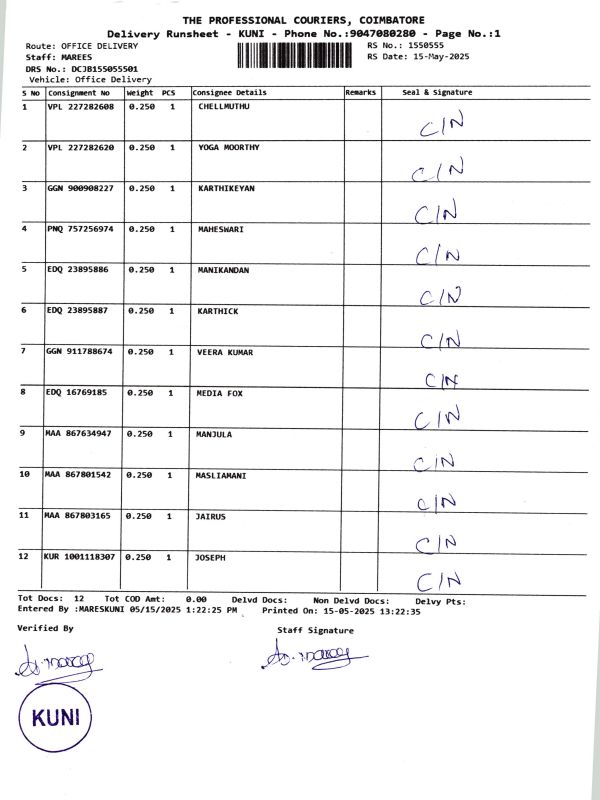 THE PROFESSIONAL COURIERS, COIMBATORE
Delivery Runsheet - KUNI - Phone No.:9047080280 - Page No.:1
Route: OFFICE DELIVERY RS No.: 1550555
Staff: MAREES RS Date: 15-May-2025
DRS No.: DCJB155055501
Vehicle: Office Delivery
S No Consignment No Weight PCS Consignee Details Remarks Seal & Signature
1 VPL 227282608 0.250 1 CHELLMUTHU C/N
2 VPL 227282620 0.250 1 YOGA MOORTHY C/N
3 GGN 900908227 0.250 1 KARTHIKEYAN C/N
4 PNQ 757256974 0.250 1 MAHESWARI C/N
5 EDQ 23895886 0.250 1 MANIKANDAN C/N
6 EDQ 23895887 0.250 1 KARTHICK C/N
7 GGN 911788674 0.250 1 VEERA KUMAR C/N
8 EDQ 16769185 0.250 1 MEDIA FOX C/N
9 MAA 867634947 0.250 1 MANJULA C/N
10 MAA 867801542 0.250 1 MASLIAMANI C/N
11 MAA 867803165 0.250 1 JAIRUS C/N
12 KUR 1001118307 0.250 1 JOSEPH C/N
Tot Docs: 12 Tot COD Amt: 0.00 Delvd Docs: Non Delvd Docs: Delvy Pts:
Entered By :MARESKUNI 05/15/2025 1:22:25 PM Printed On: 15-05-2025 13:22:35
Verified By Staff Signature
KUNI